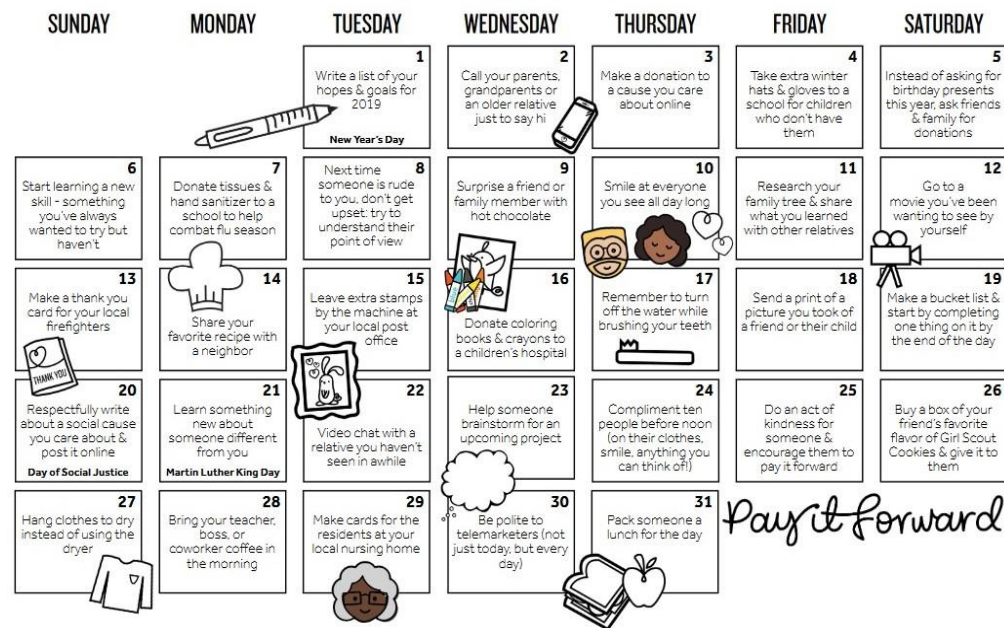 SUNDAY
MONDAY
TUESDAY
WEDNESDAY
THURSDAY
FRIDAY
SATURDAY
1
Write a list of your
hopes & goals for
2019
New Year's Day
2
Call your parents,
grandparents or
an older relative
just to say hi
3
Make a donation to
a cause you care
about online
4
Take extra winter
hats & gloves to a
school for children
who don't have
them
5
Instead of asking for
birthday presents
this year, ask friends
& family for
donations
6
Start learning a new
skill - something
you've always
wanted to try but
haven't
7
Donate tissues &
hand sanitizer to a
school to help
combat flu season
8
Next time
someone is rude
to you, don't get
upset: try to
understand their
point of view
9
Surprise a friend or
family member with
hot chocolate
10
Smile at everyone
you see all day long
11
Research your
family tree & share
what you learned
with other relatives
12
Go to a
movie you've been
wanting to see by
yourself
13
Make a thank you
card for your local
firefighters
THANK YOU
14
Share your
favorite recipe with
a neighbor
15
Leave extra stamps
by the machine at
your local post
office
16
Donate coloring
books & crayons to
a children's hospital
17
Remember to turn
off the water while
brushing your teeth
18
Send a print of a
picture you took of
a friend or their child
19
Make a bucket list &
start by completing
one thing on it by
the end of the day
20
Respectfully write
about a social cause
you care about &
post it online
Day of Social Justice
21
Learn something
new about
someone different
from you
Martin Luther King Day
22
Video chat with a
relative you haven't
seen in awhile
23
Help someone
brainstorm for an
upcoming project
24
Compliment ten
people before noon
(on their clothes,
smile, anything you
can think of!)
25
Do an act of
kindness for
someone &
encourage them to
pay it forward
26
Buy a box of your
friend's favorite
flavor of Girl Scout
Cookies & give it to
them
27
Hang clothes to dry
instead of using the
dryer
28
Bring your teacher,
boss, or
coworker coffee in
the morning
29
Make cards for the
residents at your
local nursing home
30
Be polite to
telemarketers (not
just today, but every
day)
31
Pack someone a
lunch for the day
Pay it Forward